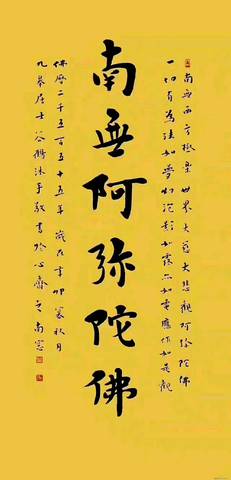 南無西方極樂世界大慈大悲觀阿弥陀佛
一切有為法如夢幻泡影如露亦如電應作如是觀
南無阿弥陀佛
佛曆二千五百五十五年歲在辛卯秋月
居士沐手敬書於心齋之南窗